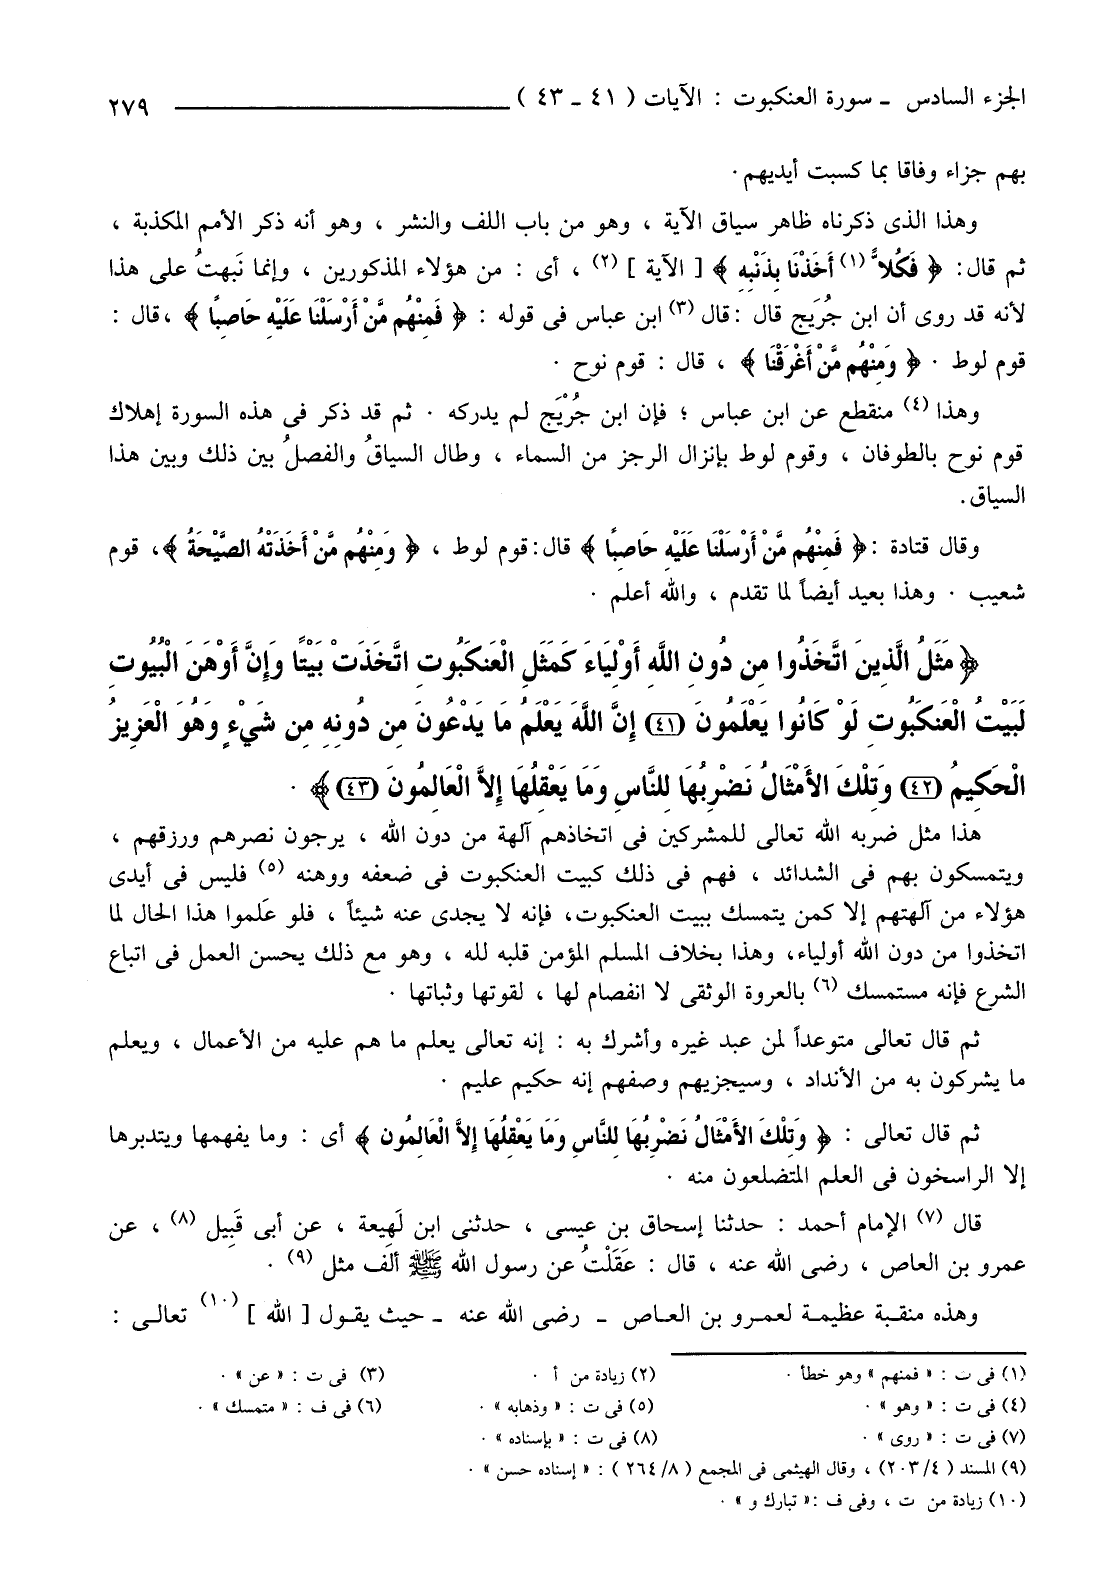 الجزء السادس ـ سورة العنكبوت : الآيات ( ٤١ ـ ٤٣ ) ٢٧٩
بهم جزاء وفاقا بما كسبت أيديهم .
وهذا الذى ذكرناه ظاهر سياق الآية ، وهو من باب اللف والنشر ، وهو أنه ذكر الأمم المكذبة ،
ثم قال: ﴿ فَكُلاًّ (١) أَخَذْنَا بِذَنْبِهِ ﴾ [ الآية ] (٢) ، أى : من هؤلاء المذكورين ، وإنما نَبهتُ على هذا
لأنه قد روى أن ابن جُرَيج قال : قال (٣) ابن عباس فى قوله : ﴿ فَمِنْهُم مَّنْ أَرْسَلْنَا عَلَيْهِ حَاصِبًا ﴾ ،قال :
قوم لوط . ﴿ وَمِنْهُم مَّنْ أَغْرَقْنَا ﴾ ، قال : قوم نوح .
وهذا (٤) منقطع عن ابن عباس ؛ فإن ابن جُرْيَج لم يدركه . ثم قد ذكر فى هذه السورة إهلاك
قوم نوح بالطوفان ، وقوم لوط بإنزال الرجز من السماء ، وطال السياقُ والفصلُ بين ذلك وبين هذا
السياق.
وقال قتادة : ﴿ فَمِنْهُم مَّنْ أَرْسَلْنَا عَلَيْهِ حَاصِبًا ﴾ قال: قوم لوط ، ﴿ وَمِنْهُم مَّنْ أَخَذَتْهُ الصَّيْحَةُ ﴾، قوم
شعيب . وهذا بعيد أيضاً لما تقدم ، والله أعلم .
﴿ مَثَلُ الَّذِينَ اتَّخَذُوا مِن دُونِ اللَّهِ أَوْلِيَاءَ كَمَثَلِ الْعَنكَبُوتِ اتَّخَذَتْ بَيْتًا وَإِنَّ أَوْهَنَ الْبُيُوتِ
لَبَيْتُ الْعَنكَبُوتِ لَوْ كَانُوا يَعْلَمُونَ (٤١) إِنَّ اللَّهَ يَعْلَمُ مَا يَدْعُونَ مِن دُونِهِ مِن شَيْءٍ وَهُوَ الْعَزِيزُ
الْحَكِيمُ (٤٢) وَتِلْكَ الأَمْثَالُ نَضْرِبُهَا لِلنَّاسِ وَمَا يَعْقِلُهَا إِلاَّ الْعَالِمُونَ (٤٣) ﴾ .
هذا مثل ضربه الله تعالى للمشركين فى اتخاذهم آلهة من دون الله ، يرجون نصرهم ورزقهم ،
ويتمسكون بهم فى الشدائد ، فهم فى ذلك كبيت العنكبوت فى ضعفه ووهنه (٥) فليس فى أيدى
هؤلاء من آلهتهم إلا كمن يتمسك ببيت العنكبوت، فإنه لا يجدى عنه شيئاً ، فلو عَلموا هذا الحال لما
اتخذوا من دون الله أولياء، وهذا بخلاف المسلم المؤمن قلبه لله ، وهو مع ذلك يحسن العمل فى اتباع
الشرع فإنه مستمسك (٦) بالعروة الوثقى لا انفصام لها ، لقوتها وثباتها .
ثم قال تعالى متوعداً لمن عبد غيره وأشرك به : إنه تعالى يعلم ما هم عليه من الأعمال ، ويعلم
ما يشركون به من الأنداد ، وسيجزيهم وصفهم إنه حكيم عليم .
ثم قال تعالى : ﴿ وَتِلْكَ الأَمْثَالُ نَضْرِبُهَا لِلنَّاسِ وَمَا يَعْقِلُهَا إِلاَّ الْعَالِمُون ﴾ أى : وما يفهمها ويتدبرها
إلا الراسخون فى العلم المتضلعون منه .
قال (٧) الإمام أحمد : حدثنا إسحاق بن عيسى ، حدثنى ابن لَهِيعة ، عن أبى قَبِيل (٨) ، عن
عمرو بن العاص ، رضى الله عنه ، قال : عَقَلْتُ عن رسول الله ﷺ ألف مثل (٩) .
وهذه منقبة عظيمة لعمرو بن العاص ـ رضى الله عنه ـ حيث يقول [ الله ] (١٠) تعالى :
(١) فى ت : « فمنهم » وهو خطأ . (٢) زيادة من أ . (٣) فى ت : « عن » .
(٤) فى ت : « وهو » . (٥) فى ت : « وذهابه » . (٦) فى ف : « متمسك » .
(٧) فى ت : « روى » . (٨) فى ت : « بإسناده » .
(٩) المسند ( ٢٠٣/٤) ، وقال الهيثمى فى المجمع ( ٢٦٤/٨ ) : « إسناده حسن » .
(١٠) زيادة من ت ، وفى ف :« تبارك و » .